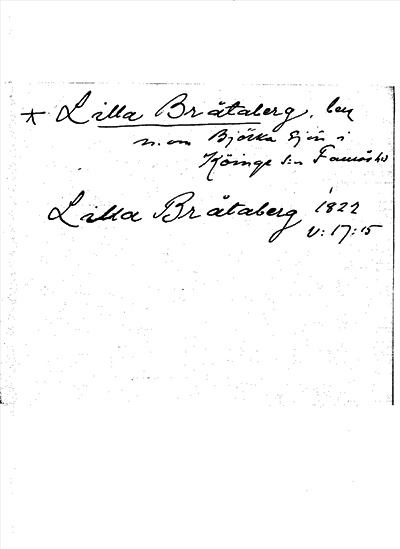 * Lilla Bråtaberg, beg
n. om Björka Sjön i
Köinge s:n Faurås hd
Lilla Bråtaberg 1822
V: 17: 15